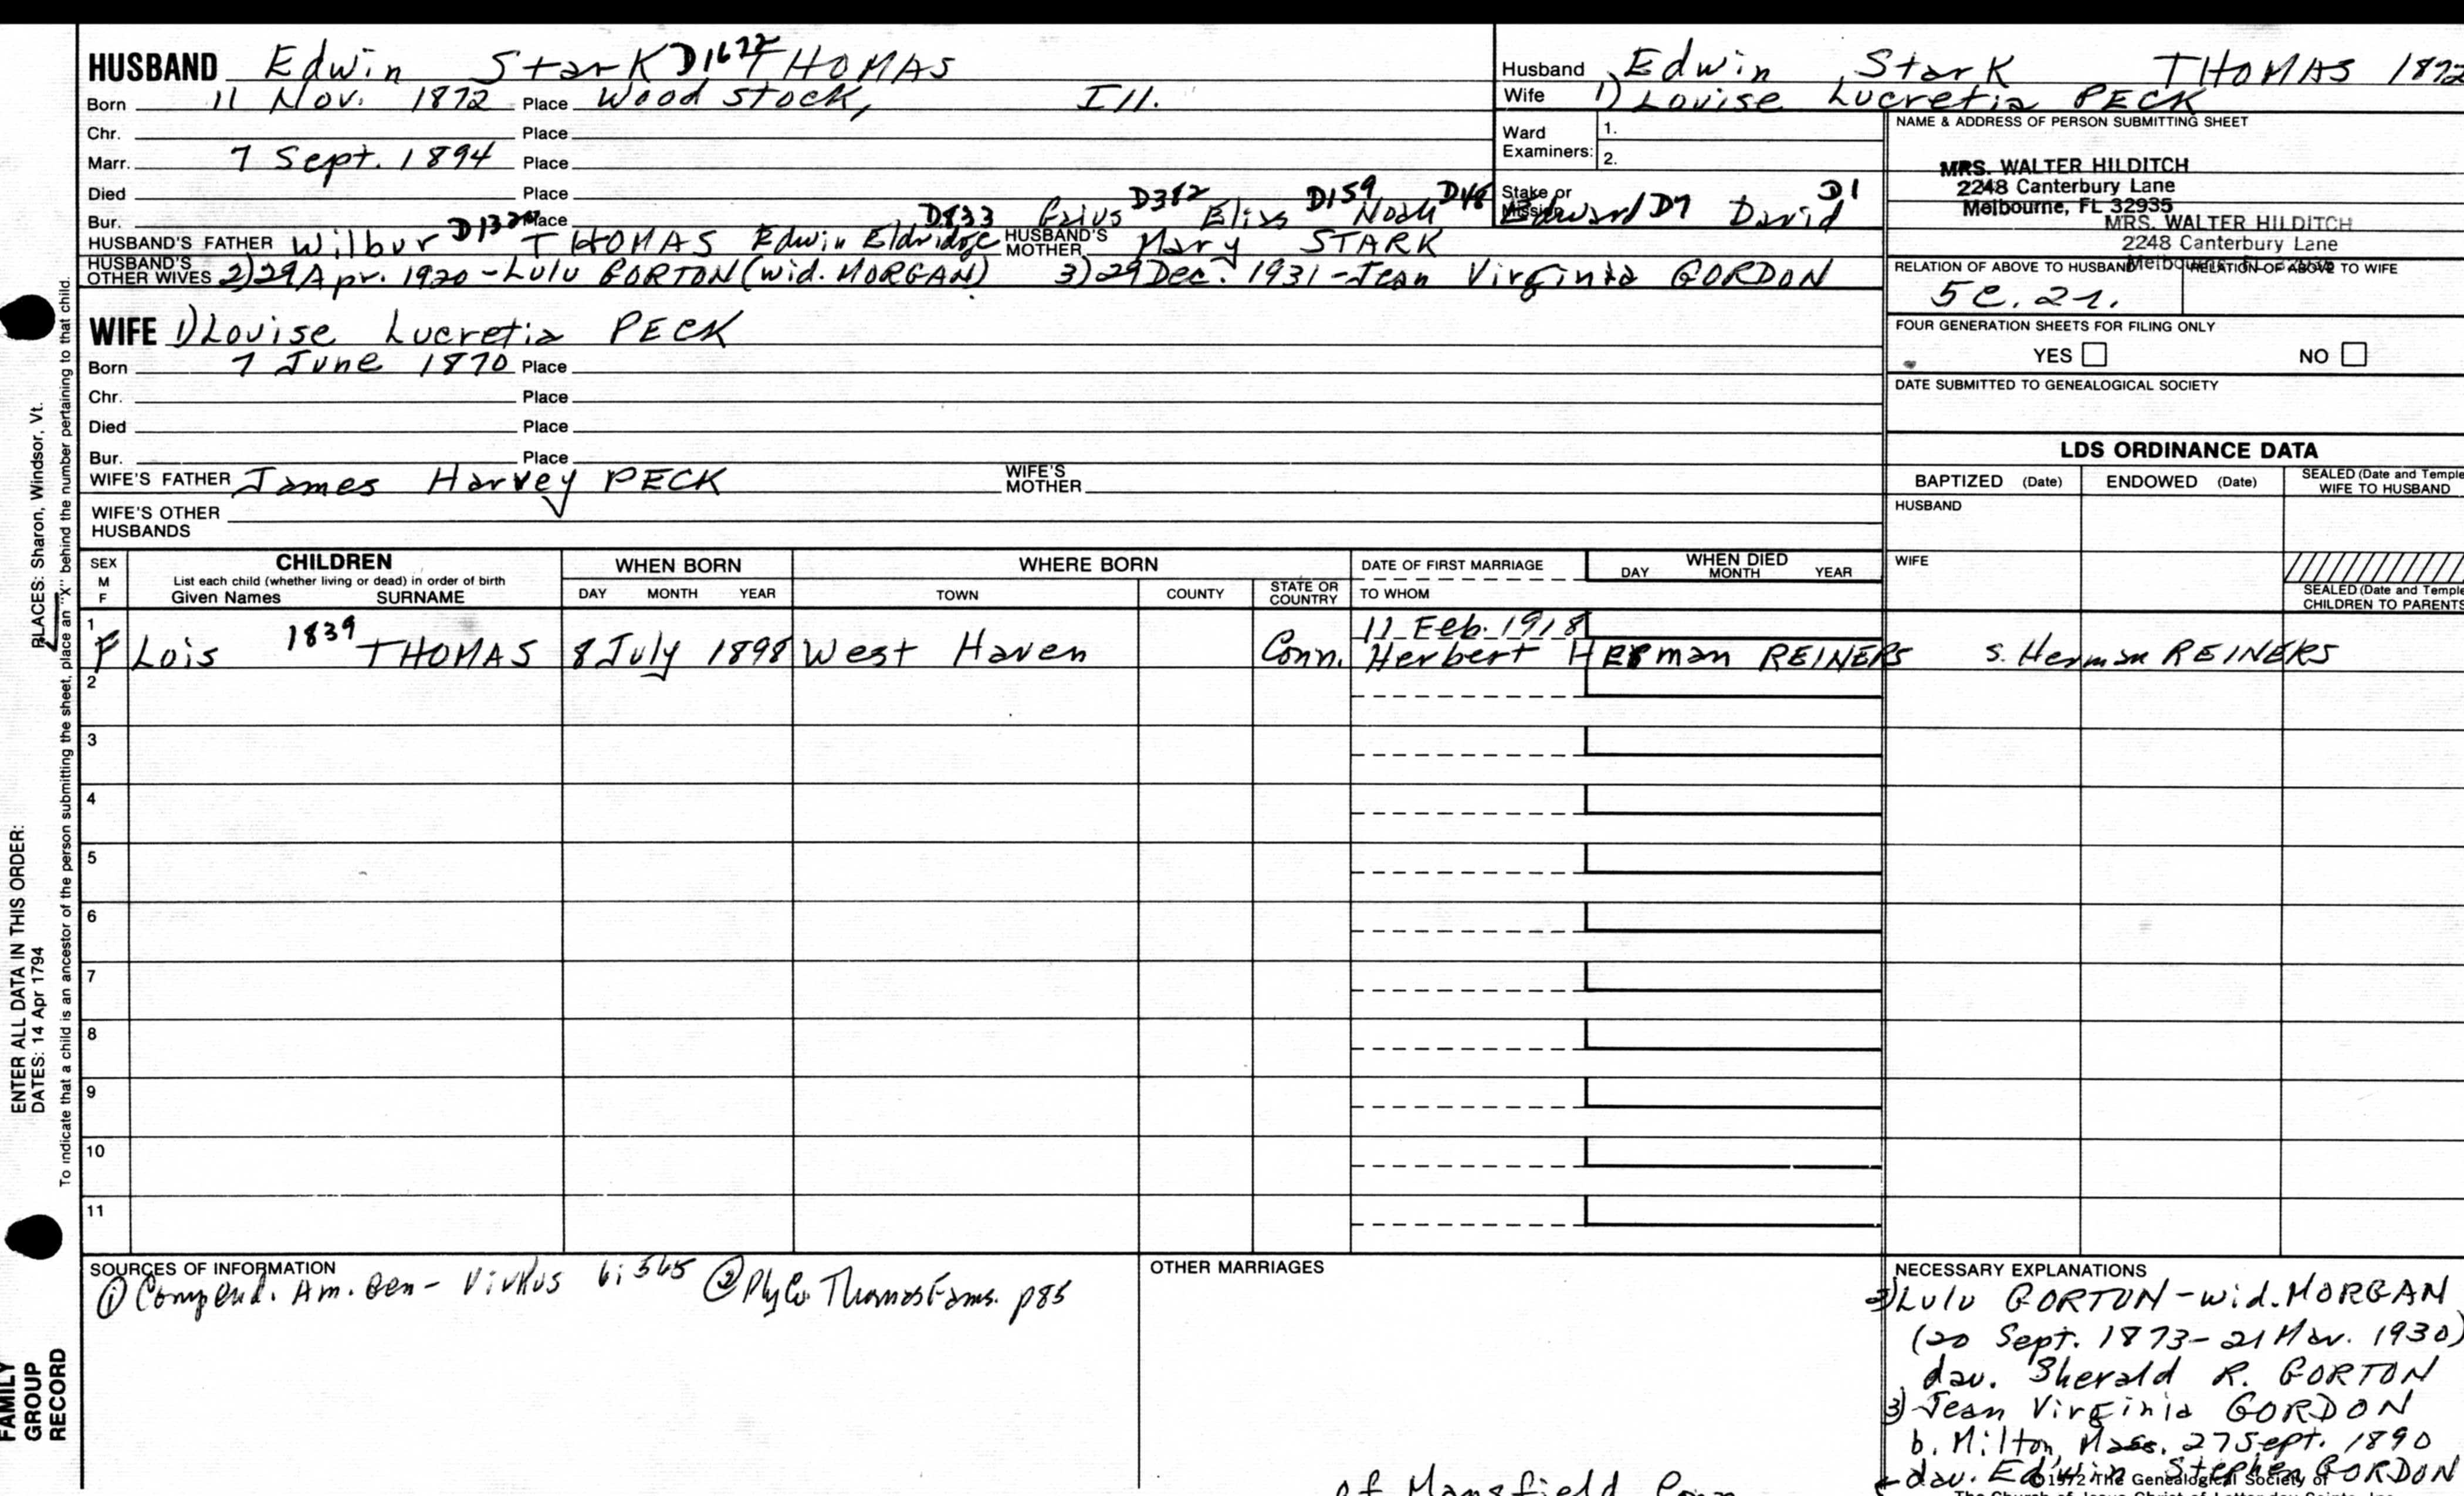 HUSBAND Edwin Stark D1672 THOMAS
Born 11 Nov. 1872 Place Woodstock, Ill.
Chr. Place
Marr. 7 Sept. 1894 Place
Died Place
Bur. Place
D833 D382 Elias D159 Noah D48 Edward D7 David D1
HUSBAND'S FATHER Wilbur THOMAS Edwin Eldridge HUSBAND'S MOTHER Mary STARK
HUSBAND'S OTHER WIVES 2) 29 Apr. 1920 - Lulu GORTON (wid. MORGAN) 3) 29 Dec. 1931 - Jean Virginia GORDON
WIFE 1) Louise Lucretia PECK
Born 7 June 1870 Place
Chr. Place
Died Place
Bur. Place
WIFE'S FATHER James Harvey PECK WIFE'S MOTHER
WIFE'S OTHER HUSBANDS
Husband Edwin Stark THOMAS 1872
Wife 1) Louise Lucretia PECK
Ward Examiners: 1.
2.
Stake or Mission
NAME & ADDRESS OF PERSON SUBMITTING SHEET
MRS. WALTER HILDITCH
2248 Canterbury Lane
Melbourne, FL 32935
MRS. WALTER HILDITCH
2248 Canterbury Lane
RELATION OF ABOVE TO HUSBAND RELATION OF ABOVE TO WIFE
5c. 2r.
FOUR GENERATION SHEETS FOR FILING ONLY
YES NO
DATE SUBMITTED TO GENEALOGICAL SOCIETY
LDS ORDINANCE DATA
BAPTIZED (Date) ENDOWED (Date) SEALED (Date and Temple WIFE TO HUSBAND
HUSBAND
WIFE
SEALED (Date and Temple
CHILDREN TO PARENTS
SEX M F CHILDREN WHEN BORN WHERE BORN DATE OF FIRST MARRIAGE WHEN DIED
List each child (whether living or dead) in order of birth DAY MONTH YEAR
Given Names SURNAME DAY MONTH YEAR TOWN COUNTY STATE OR COUNTRY TO WHOM
1 11 Feb. 1918
F Lois 1839 THOMAS 8 July 1898 West Haven Conn. Herbert Herman REINERS s. Herman REINERS
2
3
4
5
6
7
8
9
10
11
SOURCES OF INFORMATION
① Compend. Am. Gen - Virkus 6:565 ② Ply Co. Thomas Fams. p85
OTHER MARRIAGES
of Mansfield Conn
NECESSARY EXPLANATIONS
2) Lulu GORTON - wid. MORGAN
(20 Sept. 1873 - 21 Mar. 1930)
dau. Sherald R. GORTON
3) Jean Virginia GORDON
b. Milton, Mass. 27 Sept. 1890
dau. Edwin Stephen GORDON
©1972 The Genealogical Society of
The Church of Jesus Christ of Latter-day Saints, Inc.
ENTER ALL DATA IN THIS ORDER:
DATES: 14 Apr 1794 PLACES: Sharon, Windsor, Vt.
To indicate that a child is an ancestor of the person submitting the sheet, place an "X" behind the number pertaining to that child.
FAMILY
GROUP
RECORD